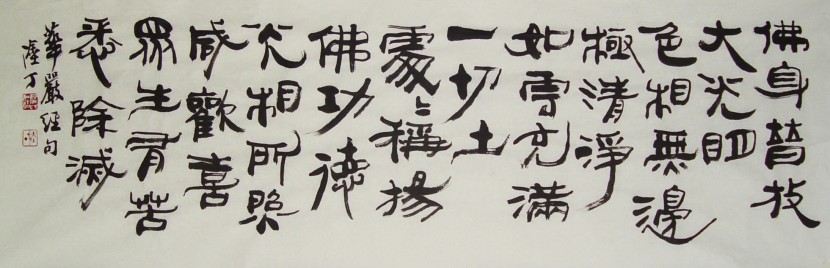 佛身普放
大光明
色相無邊
極清淨
如雲充滿
一切土
處〻稱揚
佛功德
光相所照
咸歡喜
眾生有苦
悉除滅
華嚴經句